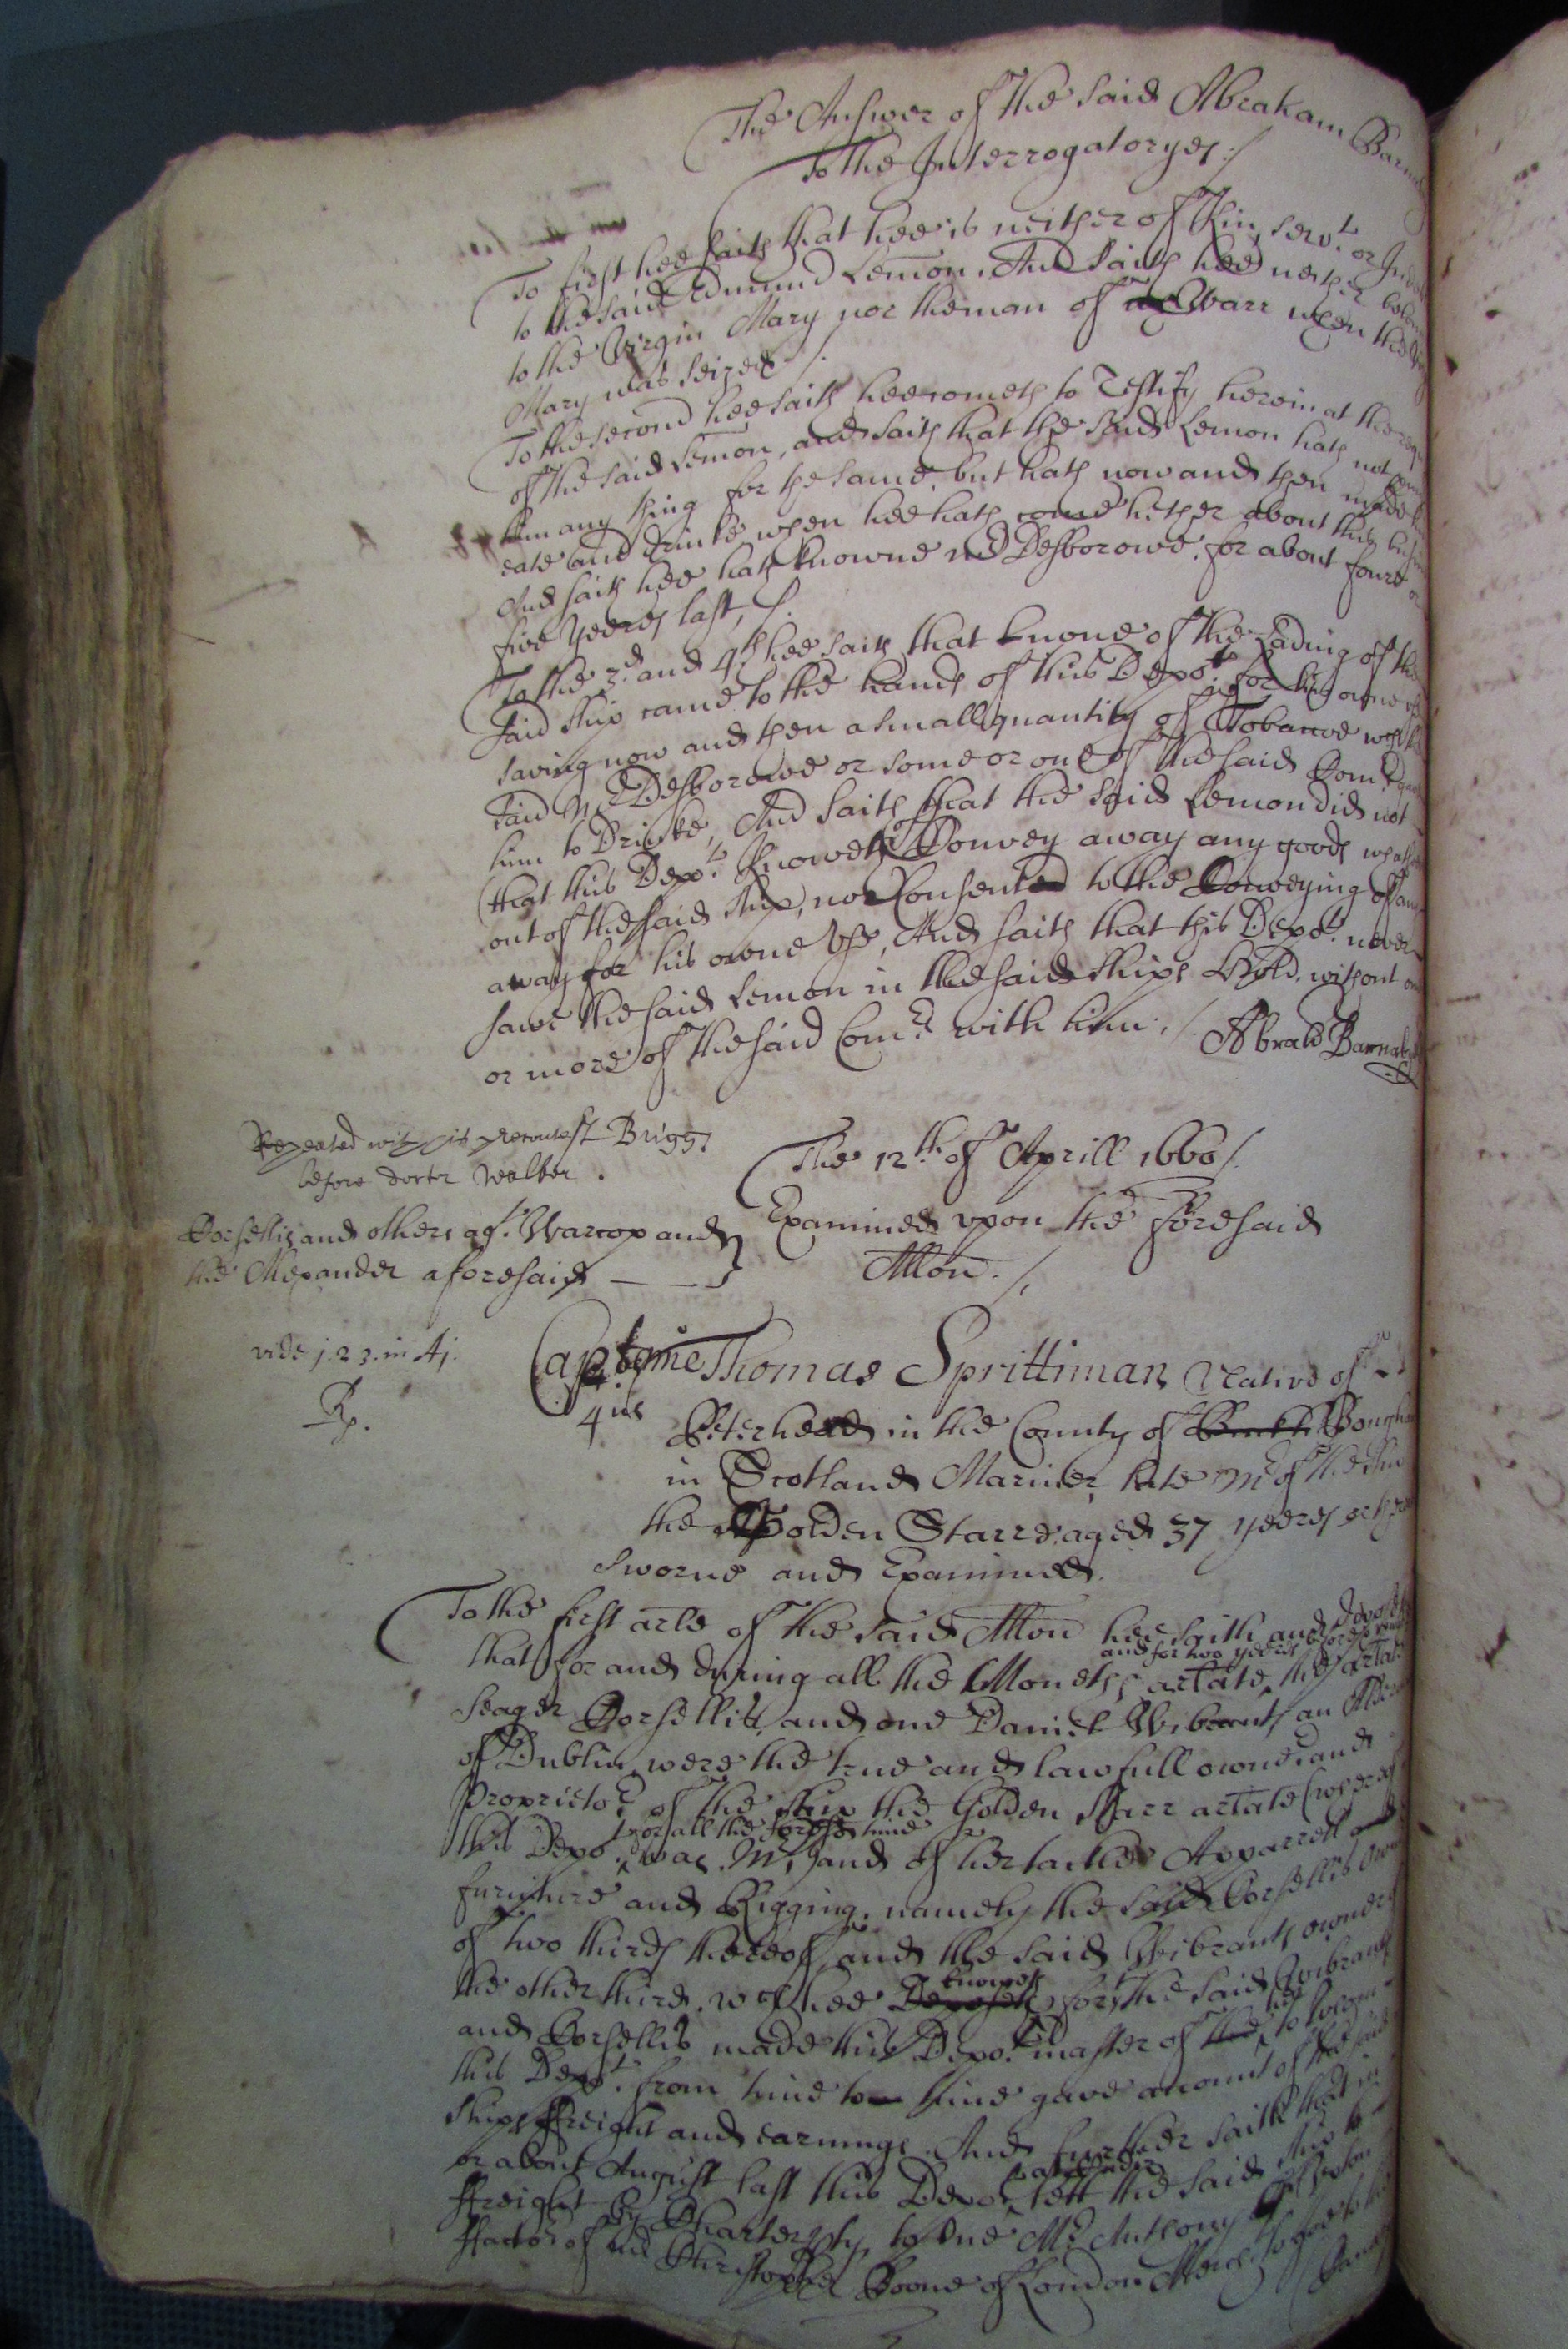 The Answer of the said Abraham
To the Interrogatoryes:/
To first hee saith that hee is neither of Kin, serv:t or
to the said Edmund Lemon, And saith hee neither
to the Virgin Mary nor theman of Warr when the
Mary was seized /.
To the second hee saith hee cometh to Testify herein at the
of the said Lemon, and saith that the said Lemon hath not
him any thing for the same, but hath now and then made
eate and drinke when hee hath come hether about this
And saith hee hath knowne mr Desborowe for about foure or
five yeeres last, /.
To the 3d and 4th hee saith that knone of the Lading of the
said ship came to the hands of this Depo:t for his owne
saving now and then a small quantity of Tobaccoe wch the
said Mr Desborowe or some or one of the said Comrs
him to Drinke, And saith that the said Lemon did not
(that this Depo:t knoweth) Convey away any goods
out of the said ship, nor Consented to the Conveying of any
away for his owne Use, And saith that this Depo:t never
sawe the said Lemon in the said ships Hold, without
or more of the said Comrs with him, /.
The 12th of Aprill 1660/.
Repeated with his precontest Briggs
before doctor Walker.
Corsellis and others agt. Warcop and
the Alexander aforesaid
Examined upon the foresaid
Allon. /.
vide j. 2 3. in Aj.
Rp.
Captaine Thomas Sprittiman Native of
4us
Peterhead in the County of
in Scotland Mariner late Mr of the
the Golden Starre, aged 37 yeeres
sworne and Examined.
To the first arle of the said Allon hee saith and
and for two yeeres before
that for and during all the Moneths arlate, the arlate
Seager Corsellis, and one Daniel Wibrants an
of Dublin were the true and lawfull owners and
Proprietors of the ship the Golden Starr arlate (whereof
for all the foresd time
this Depo:t was Mr) and of her tackle Apparrell and
furniture and Rigging, namely the said Corsellis
of two thirds thereof, and the said Wibrants owner of
knoweth
the other third, wch hee Deposeth, for the said Wibrants
and Corsellis made this Depo:t master of
this Depo:t from time to time gave account of the said
ships freight and earnings. And further saith that in
or about August last this Depo:t lett the said ship to
freight by Charterpty, to one Mr Anthony
factor of mr Christopher Boone of London